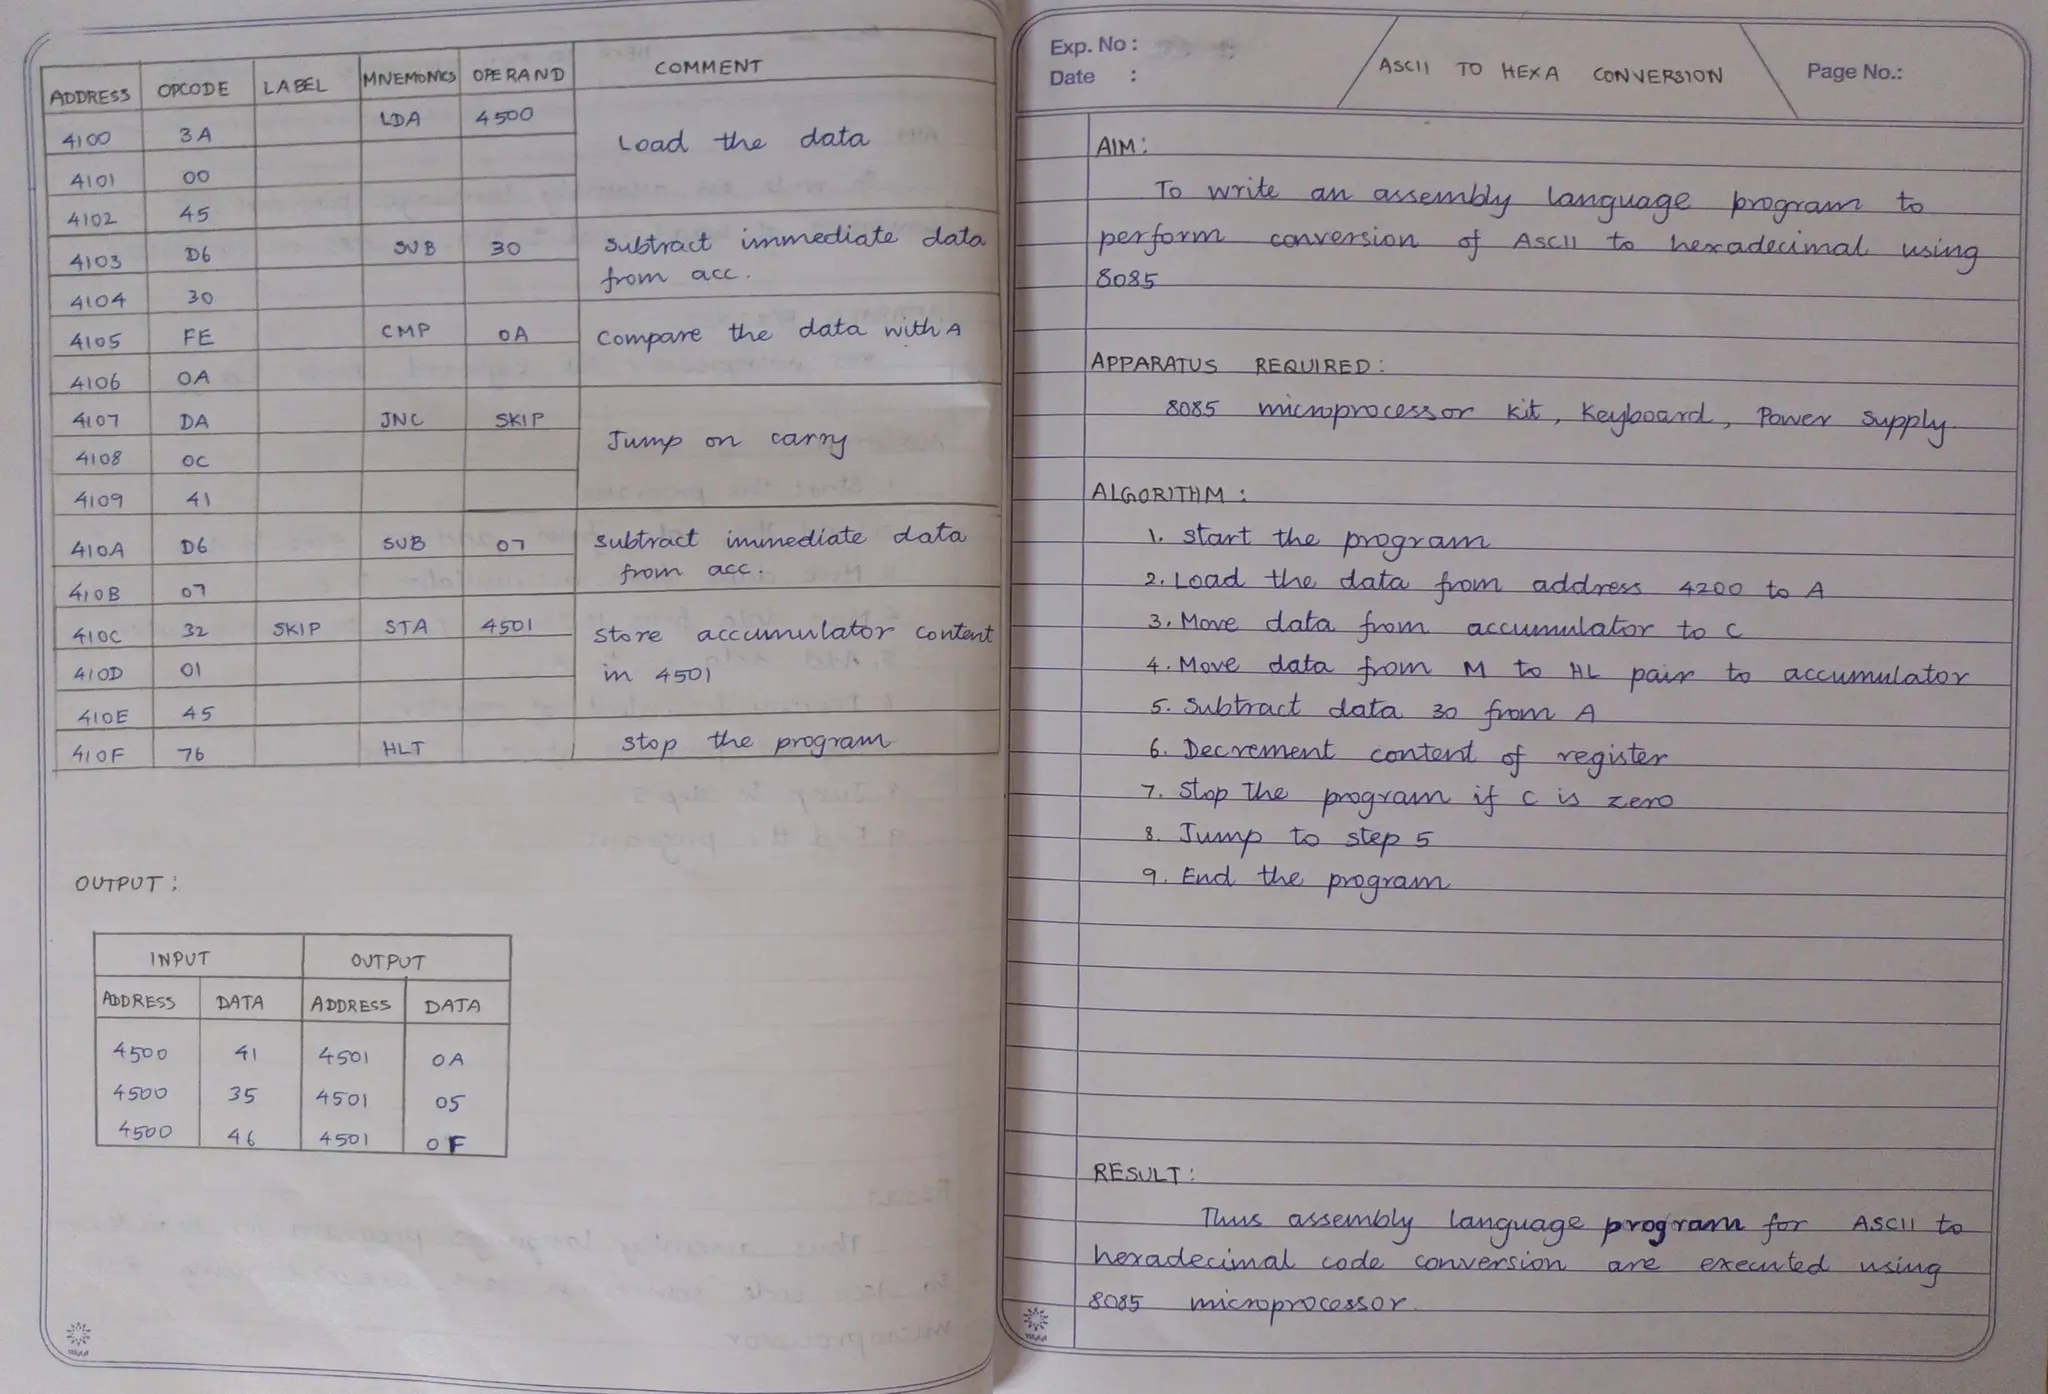 ADDRESS OPCODE LABEL MNEMONICS OPERAND COMMENT
4100 3A LDA 4500 Load the data
4101 00
4102 45
4103 D6 SUB 30 Subtract immediate data
from acc.
4104 30
4105 FE CMP 0A Compare the data with A
4106 0A
4107 DA JNC SKIP Jump on carry
4108 0C
4109 41
410A D6 SUB 07 Subtract immediate data
from acc.
410B 07
410C 32 SKIP STA 4501 Store accumulator content
410D 01 in 4501
410E 45
410F 76 HLT Stop the program
OUTPUT:
INPUT OUTPUT
ADDRESS DATA ADDRESS DATA
4500 41 4501 0A
4500 35 4501 05
4500 46 4501 0F
Exp. No :
Date :
ASCII TO HEXA CONVERSION
Page No.:
AIM:
To write an assembly language program to
perform conversion of ASCII to hexadecimal using
8085
APPARATUS REQUIRED:
8085 microprocessor kit, Keyboard, Power Supply.
ALGORITHM:
1. Start the program
2. Load the data from address 4200 to A
3. Move data from accumulator to C
4. Move data from M to HL pair to accumulator
5. Subtract data 30 from A
6. Decrement content of register
7. Stop the program if C is zero
8. Jump to step 5
9. End the program
RESULT:
Thus assembly language program for ASCII to
hexadecimal code conversion are executed using
8085 microprocessor.